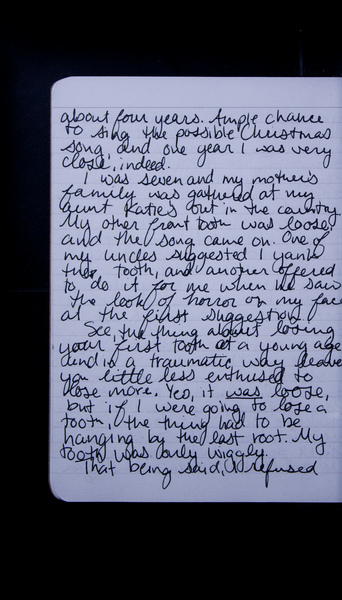 about four years. Ample chance
to sing the possible Christmas
song, and one year I was very
close, indeed.
I was seven and my mother's
family was gathered at my
aunt Katie's out in the country.
My other front tooth was loose,
and the song came on. One of
my uncles suggested I yank
the tooth, and another offered
to do it for me when he saw
the look of horror on my face
at the first suggestion.
See, the thing about losing
your first tooth at a young age
and in a traumatic way leaves
you little less enthused to
lose more. Yes, it was loose,
but if I were going to lose a
tooth, the thing had to be
hanging by the last root. My
tooth was only wiggly.
That being said, I refused